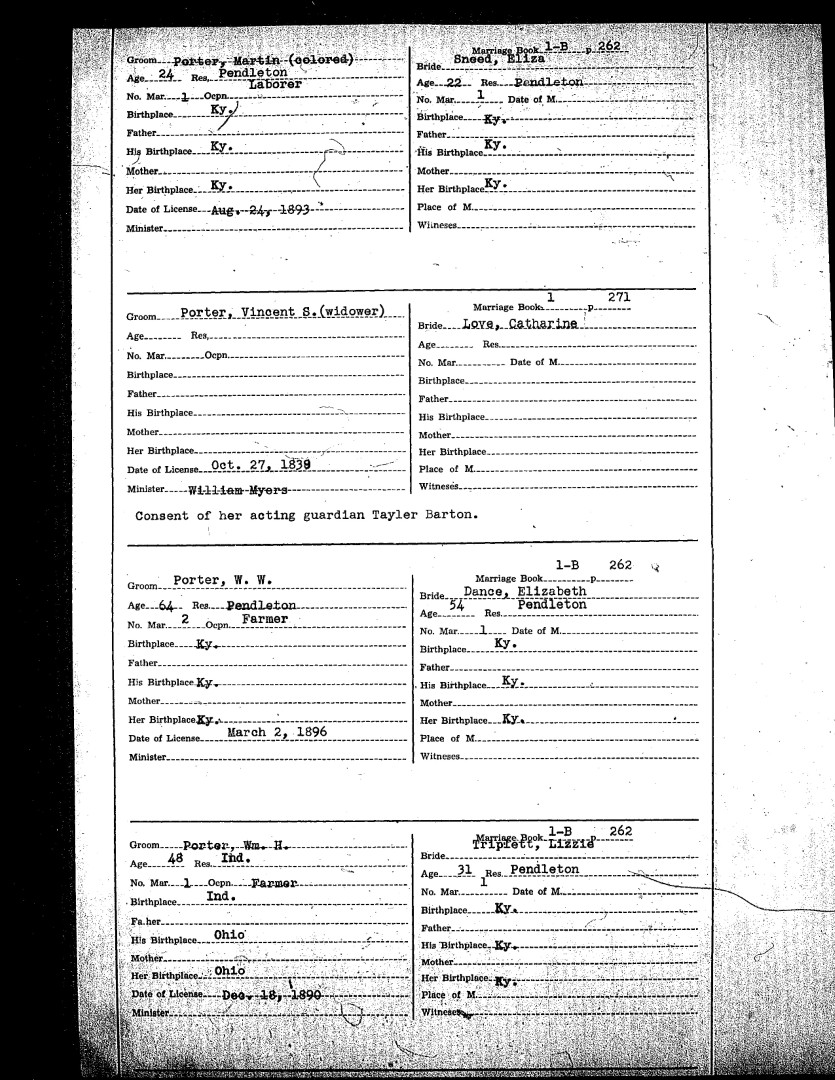 Groom Porter, Martin (colored)
Age 24 Res. Pendleton
No. Mar. 1 Ocpn. Laborer
Birthplace Ky.
Father
His Birthplace Ky.
Mother
Her Birthplace Ky.
Date of License Aug. 24, 1893
Minister
Marriage Book 1-B p. 262
Bride Sneed, Eliza
Age 22 Res. Pendleton
No. Mar. 1 Date of M.
Birthplace Ky.
Father
His Birthplace Ky.
Mother
Her Birthplace Ky.
Place of M.
Witneses
Groom Porter, Vincent S.(widower)
Age Res.
No. Mar. Ocpn.
Birthplace
Father
His Birthplace
Mother
Her Birthplace
Date of License Oct. 27, 1839
Minister William Myers
Marriage Book 1 p. 271
Bride Love, Catharine
Age Res.
No. Mar. Date of M.
Birthplace
Father
His Birthplace
Mother
Her Birthplace
Place of M.
Witneses
Consent of her acting guardian Tayler Barton.
Groom Porter, W. W.
Age 64 Res. Pendleton
No. Mar. 2 Ocpn. Farmer
Birthplace Ky.
Father
His Birthplace Ky.
Mother
Her Birthplace Ky.
Date of License March 2, 1896
Minister
Marriage Book 1-B p. 262
Bride Dance, Elizabeth
Age 54 Res. Pendleton
No. Mar. 1 Date of M.
Birthplace Ky.
Father
His Birthplace Ky.
Mother
Her Birthplace Ky.
Place of M.
Witneses
Groom Porter, Wm. H.
Age 48 Res. Ind.
No. Mar. 1 Ocpn. Farmer
Birthplace Ind.
Father
His Birthplace Ohio
Mother
Her Birthplace Ohio
Date of License Dec. 18, 1890
Minister
Marriage Book 1-B p. 262
Bride Triplett, Lizzie
Age 31 Res. Pendleton
No. Mar. 1 Date of M.
Birthplace Ky.
Father
His Birthplace Ky.
Mother
Her Birthplace Ky.
Place of M.
Witneses